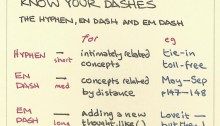 KNOW YOUR DASHES
THE HYPHEN, EN DASH AND EM DASH
for eg
HYPHEN — short intimately related concepts tie-in toll-free
EN DASH — med concepts related by distance May–Sep p147–148
EM DASH — long Adding a new thought—like () Love it— but the